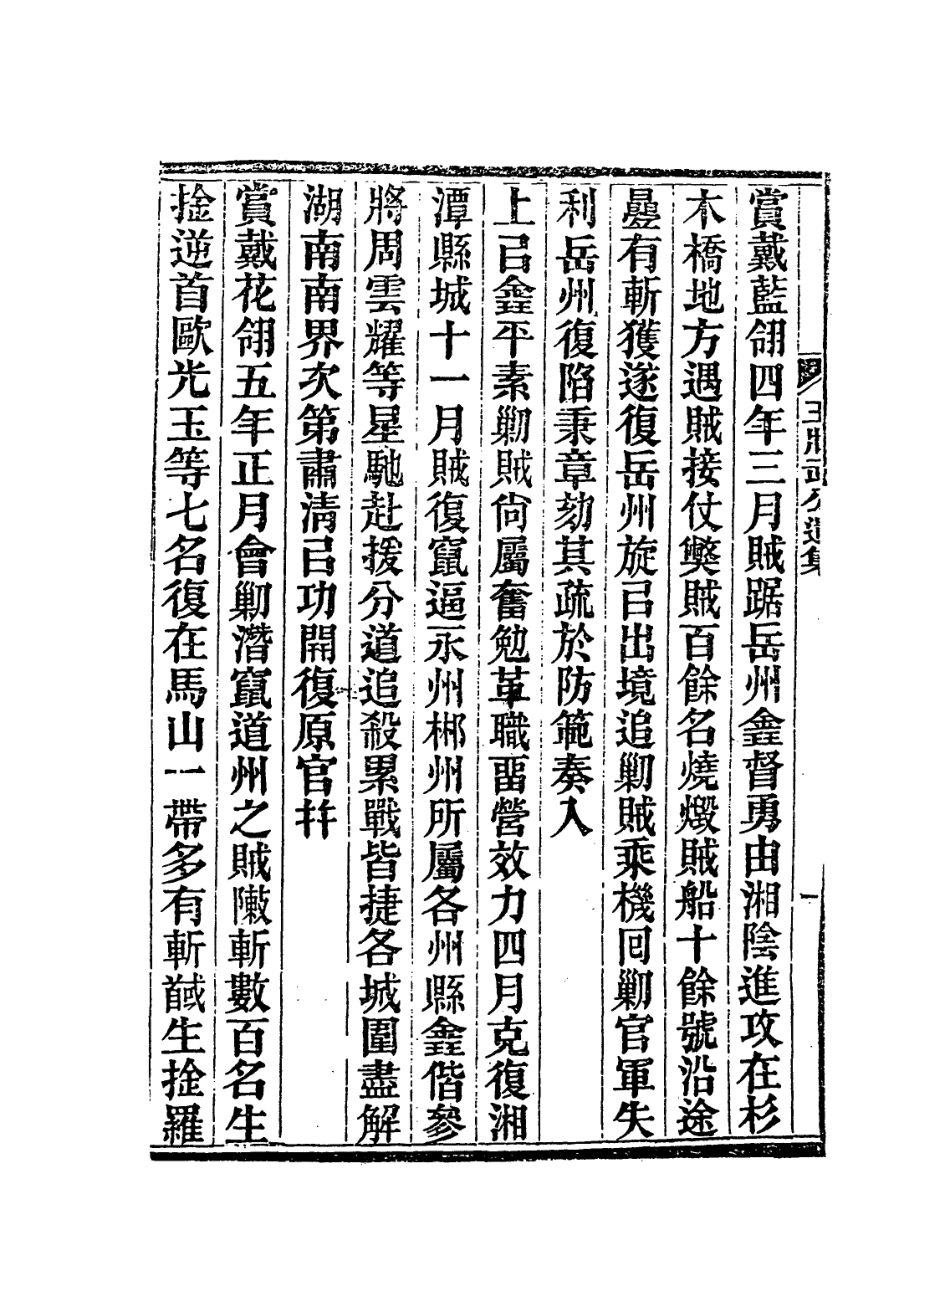 賞戴藍翎四年三月賊踞岳州錱督勇由湘陰進攻在杉
木橋地方遇賊接仗獘賊百餘名燒燬賊船十餘號沿途
疊有斬獲遂復岳州旋㠯出境追剿賊乘機回剿官軍失
利岳州復陷秉章劾其疏於防範奏入
上㠯錱平素剿賊尙屬奮勉革職畱營效力四月克復湘
潭縣城十一月賊復竄逼永州郴州所屬各州縣錱偕參
將周雲耀等星馳赴援分道追殺累戰皆捷各城圍盡解
湖南南界次第肅淸㠯功開復原官幷
賞戴花翎五年正月會剿潛竄道州之賊陣斬數百名生
捦逆首歐光玉等七名復在馬山一帶多有斬馘生捦羅
王壯武公遺集
一